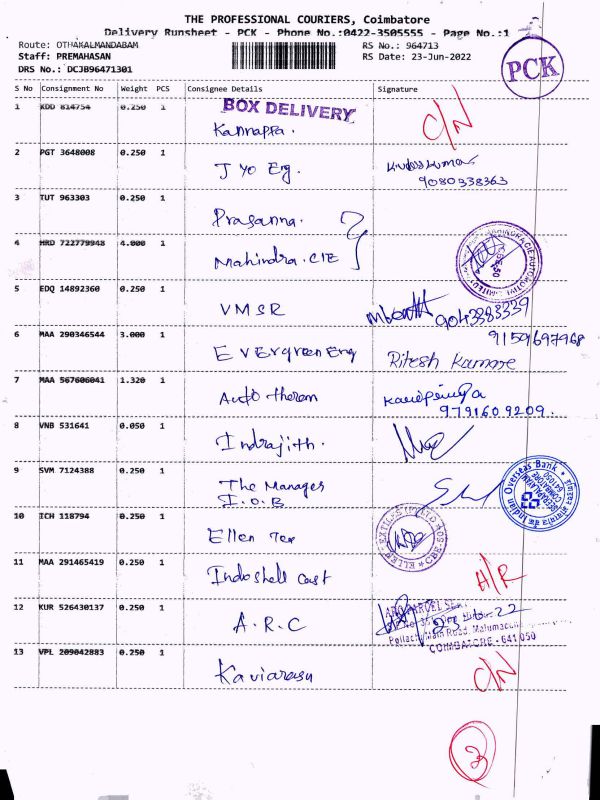 THE PROFESSIONAL COURIERS, Coimbatore
Delivery Runsheet - PCK - Phone No.:0422-3505555 - Page No.:1
Route: OTHAKALMANDABAM
RS No.: 964713
Staff: PREMAHASAN
RS Date: 23-Jun-2022
DRS No.: DCJB96471301
PCK
S No Consignment No Weight PCS Consignee Details Signature
1 KDD 814754 0.250 1 BOX DELIVERY C/N
Kannappa.
2 PGT 3648008 0.250 1
J yo Eng.
9080338363
3 TUT 963303 0.250 1
Prasanna.
4 HRD 722779948 4.000 1
Mahindra. CIE
5 EDQ 14892360 0.250 1
VMSR 9043383339
6 MAA 290346544 3.000 1 9159697968
Evergreen Eng Ritesh
7 MAA 567606041 1.320 1
Auto therm
9791609209.
8 VNB 531641 0.050 1
Indrajith.
9 SVM 7124388 0.250 1
The Manager
I.O.B
Indian Overseas Bank
10 ICH 118794 0.250 1
Ellen Tex
11 MAA 291465419 0.250 1
Indoshell Cast A/R
12 KUR 526430137 0.250 1
A.R.C
Pollachi Main Road,
COIMBATORE - 641 050
13 VPL 209042883 0.250 1
Kaviarasu C/N
3